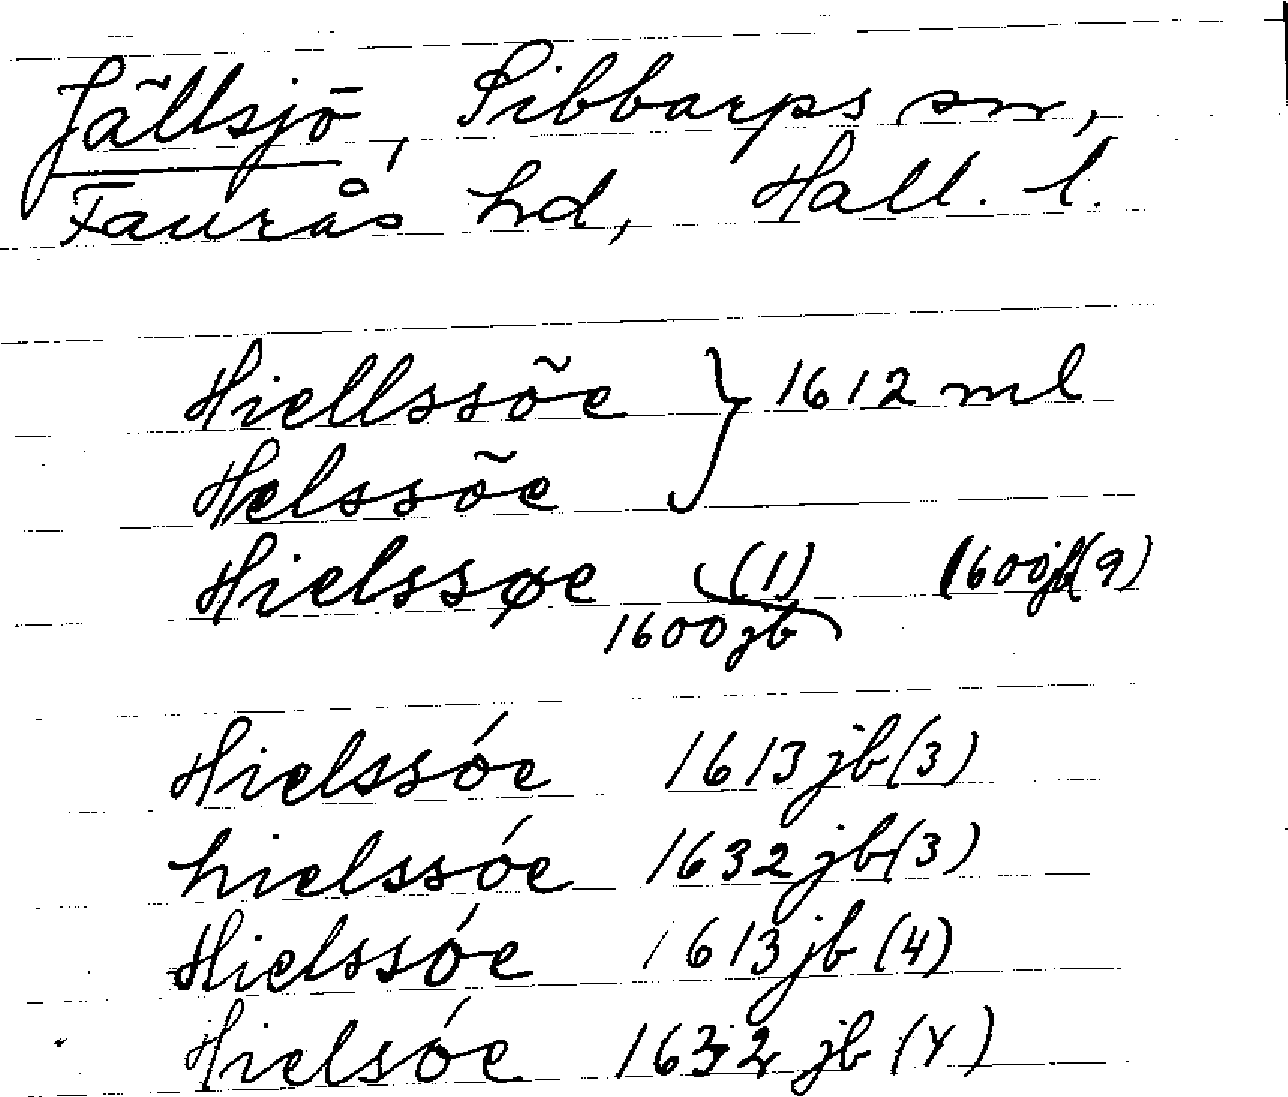 Jällsjö, Sibbarps sn,
Faurås hd, Hall. l.
Hiellssõe } 1612 ml
Helssõe
Hielssøe (1) 1600 jb (9)
1600 jb
Hielssóe 1613 jb (3)
hielssóe 1632 jb (3)
Hielssóe 1613 jb (4)
Hielsóe 1632 jb (4)